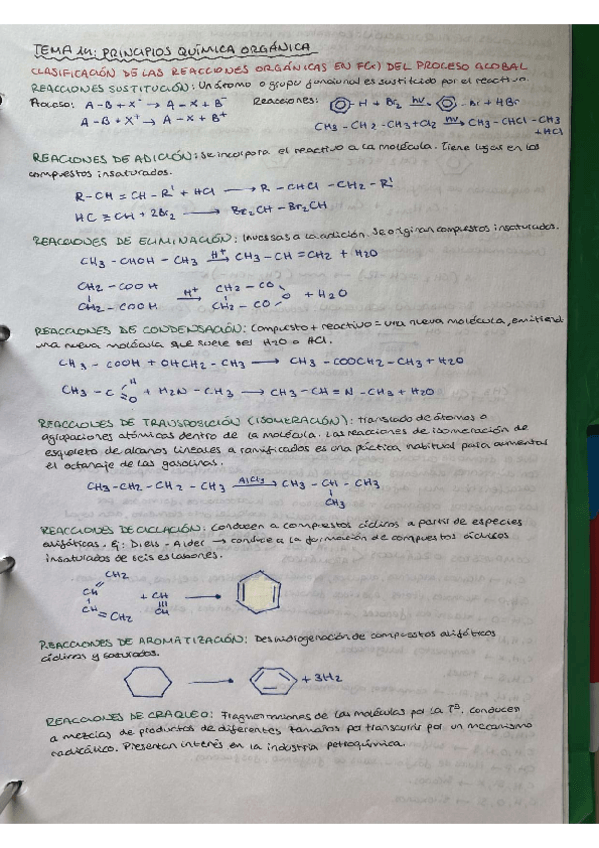 TEMA 14: PRINCIPIOS QUÍMICA ORGÁNICA
CLASIFICACIÓN DE LAS REACCIONES ORGÁNICAS EN F(x) DEL PROCESO GLOBAL
REACCIONES SUSTITUCIÓN: Un átomo o grupo funcional es sustituido por el reactivo.
Proceso: A-B + X⁻ → A-X + B⁻ Reacciones: -H + Br2 hν → -Br + HBr
A-B + X⁺ → A-X + B⁺ CH3-CH2-CH3+Cl2 hν → CH3-CHCl-CH3
+HCl
REACCIONES DE ADICIÓN: Se incorpora el reactivo a la molécula. Tiene lugar en los
compuestos insaturados.
R-CH=CH-R' + HCl → R-CHCl-CH2-R'
HC≡CH + 2Br2 → Br2CH-Br2CH
REACCIONES DE ELIMINACIÓN: Inversas a la adición. Se originan compuestos insaturados.
CH3-CHOH-CH3 H⁺ → CH3-CH=CH2 + H2O
CH2-COOH H⁺ → CH2-CO
O + H2O
CH2-COOH CH2-CO
REACCIONES DE CONDENSACIÓN: Compuesto + reactivo = una nueva molécula, emitiendo
una nueva molécula que suele ser H2O o HCl.
CH3-COOH + OHCH2-CH3 → CH3-COOCH2-CH3 + H2O
CH3-C H O + H2N-CH3 → CH3-CH=N-CH3 + H2O
REACCIONES DE TRANSPOSICIÓN (ISOMERACIÓN): Translado de átomos o
agrupaciones atómicas dentro de la molécula. Las reacciones de isomeración de
esqueleto de alcanos lineales a ramificados es una páctica habitual para aumentar
el octanaje de las gasolinas.
CH3-CH2-CH2-CH3 AlCl3 → CH3-CH-CH3
CH3
REACCIONES DE CICLACIÓN: Conducen a compuestos cíclicos a partir de especies
alifáticas. Ej: Diels-Alder → conduce a la formación de compuestos cíclicos
insaturados de seis eslabones.
CH2
CH + CH →
CH CH
=CH2
REACCIONES DE AROMATIZACIÓN: Deshidrogenación de compuestos alifáticos
cíclicos y saturados.
→ + 3H2
REACCIONES DE CRAQUEO: de las moléculas por la Tª. Conducen
a mezclas de productos de diferentes tamaños por transcurrir por un mecanismo
radicálico. Presentan interés en la industria petroquímica.